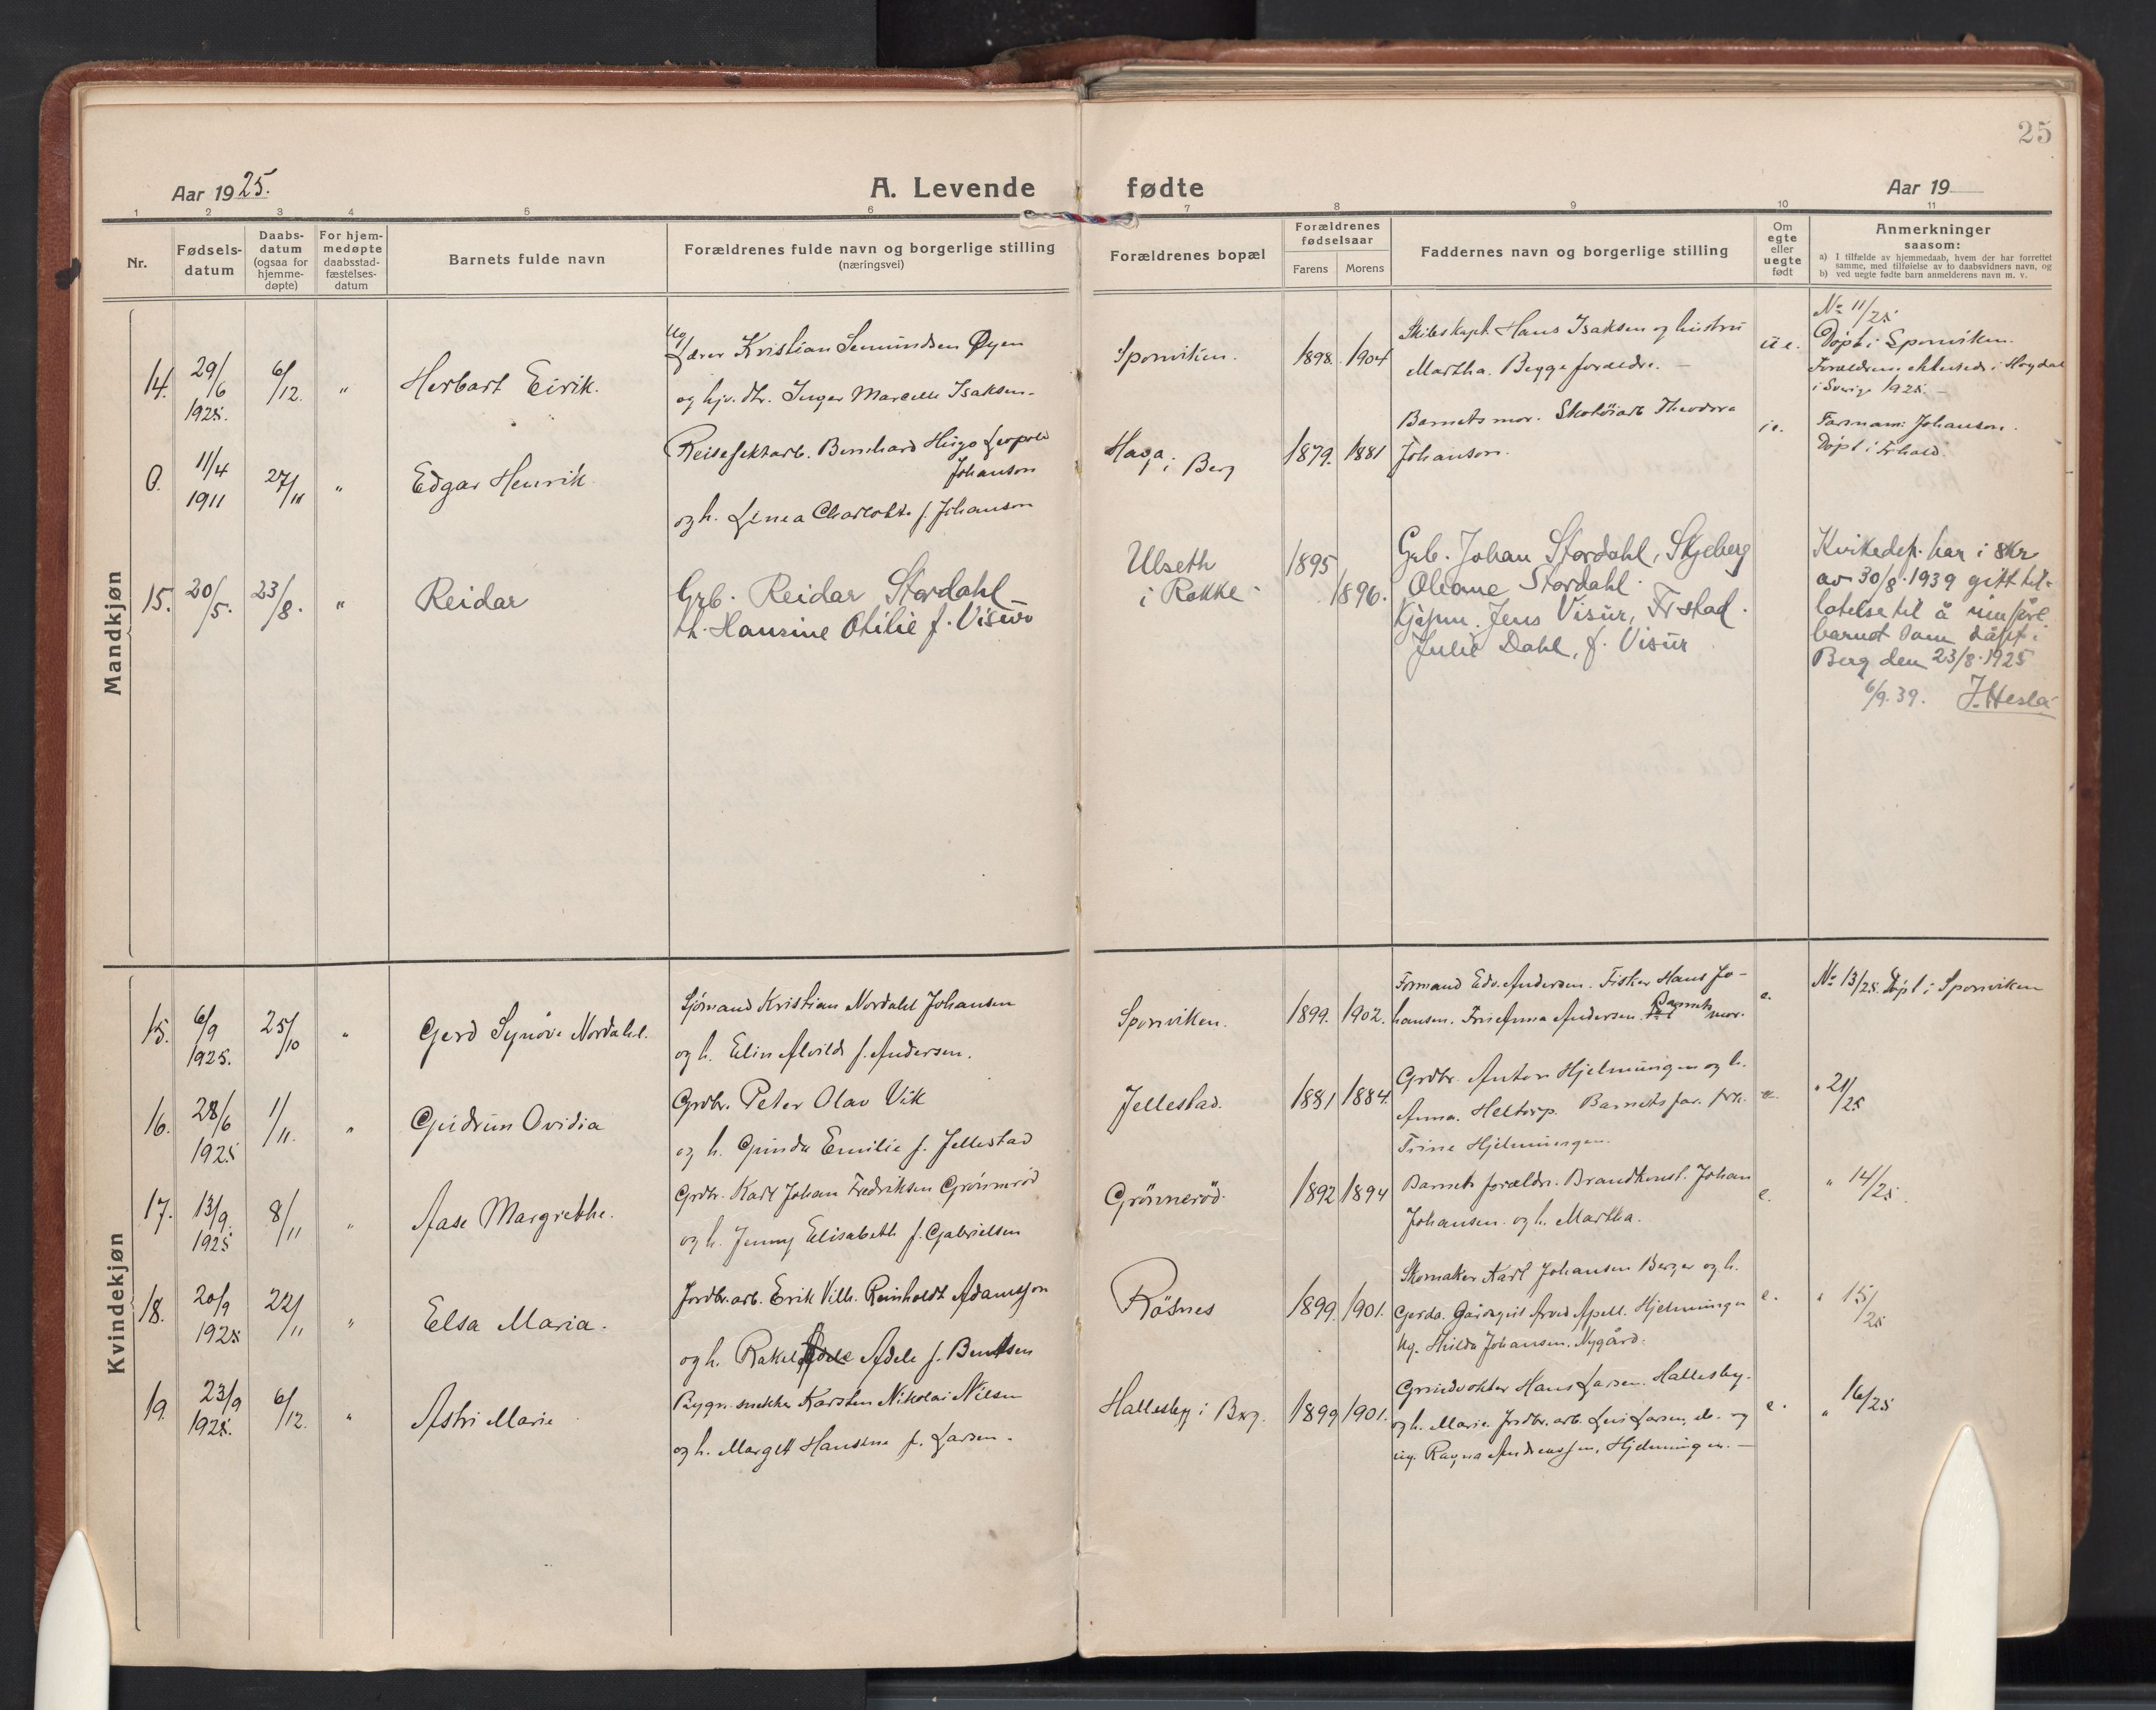 25
Aar 1925.
A. Levende fødte
Aar 19
1 2 3 4 5 6 7 8 9 10 11
Nr.
Fødsels-
datum
Daabs-
datum
(ogsaa for
hjemme-
døpte)
For hjem-
medøpte
daabsstad-
fæstelses-
datum
Barnets fulde navn
Forældrenes fulde navn og borgerlige stilling
(næringsvei)
Forældrenes bopæl
Forældrenes
fødselsaar
Farens Morens
Faddernes navn og borgerlige stilling
Om
egte
eller
uegte
født
Anmerkninger
saasom:
a) I tilfælde av hjemmedaab, hvem der har forrettet
samme, med tilføielse av to daabsvidners navn, og
b) ved uegte fødte barn anmelderens navn m. v.
Mandkjøn
14. 29/6 1925. 6/12. " Herbart Eirik.
Ug.
Lærer Kristian Semundsen Øyen
og hjv. dtr. Inger Marcelle Isaksen.
Sponviken. 1898. 1904
Skibskapt. Hans Isaksen og hustru
Martha. Begge forældre. —
u e.
No 11/25
Døpt i Sponviken.
Forældrene ektevied i Hogdal
i Sverige 1925. —
0. 11/4 1911 27/11 " Edgar Henrik.
Reisefektarb. Bernhard Hugo Leopold
Johanson
og h. Linea Charlotte f. Johanson
Haga i Berg 1879. 1881
Barnets mor. Skotöiarb Theodora
Johanson.
Farsnavn: Johanson.
Døpt i Frhald.
15. 20/5. 23/8. " Reidar
Grb. Reidar Stordahl
h. Hansine Otilie f. Visur
Ulseth
i Rokke 1895 1896.
Grb. Johan Stordahl, Skjeberg
Oleane Stordahl.
Kjøpm. Jens Visur, Frstad.
Julie Dahl, f. Visur
Kirkedep. har i skr
av 30/8.1939 gitt til-
latelse til å innføre
barnet som døpt i
Berg den 23/8.1925
6/9.39. J. Hesla
Kvindekjøn
15. 6/9 1925. 25/10 " Gerd Synöve Nordahl.
Sjömand Kristian Nordahl Johansen
og h. Elin Alvilde f. Andersen.
Sponviken. 1899. 1902.
Formand Edv. Andersen. Fisker Hans Jo-
hansen. Fru Anna Andersen. Barnets mor.
e.
No 13/25. Døpt i Sponviken
16. 28/6 1925 1/11. " Gudrun Ovidia
Grdbr. Peter Olav Vik
og h. Gunda Emilie f. Jellestad
Jellestad. 1881 1884.
Grdbr. Anton Hjelmungen og h.
Anna. Heltorp. Barnets far. frk.
Trine Hjelmungen.
e.
" 21/25
17. 13/9. 1925 8/11 " Aase Margrethe.
Grdbr. Karl Johan Fredriksen Grönneröd
og h. Jenny Elisabeth f. Gabrielsen
Grönneröd. 1892 1894
Barnets forældre. Brandkonst. Johan
Johansen og h. Martha.
e.
" 14/25.
18. 20/9 1925 22/11 " Elsa Maria.
Jordbr.arb. Erik Vilh. Reinholdt Adamsson
og h. Rakel Adele f. Bentsen
Rösnes 1899. 1901.
Skomaker Karl Johansen Berger og h.
Gerda. Gårdgut Arvid Apell. Hjelmungen
Ug. Hilda Johansen, Nygård.
e.
" 15/25
19. 23/9 1925. 6/12. " Astri Marie
Bygn.snekker Karsten Nikolai Nilsen
og h. Margit Hansine f. Larsen.
Hallesby i Berg. 1899 1901.
Hans Larsen. Hallesby.
og h. Marie. Jordbr.arb. Larsen, do. og
ug. Ragna Andreassen, Hjelmungen. —
e.
" 16/25